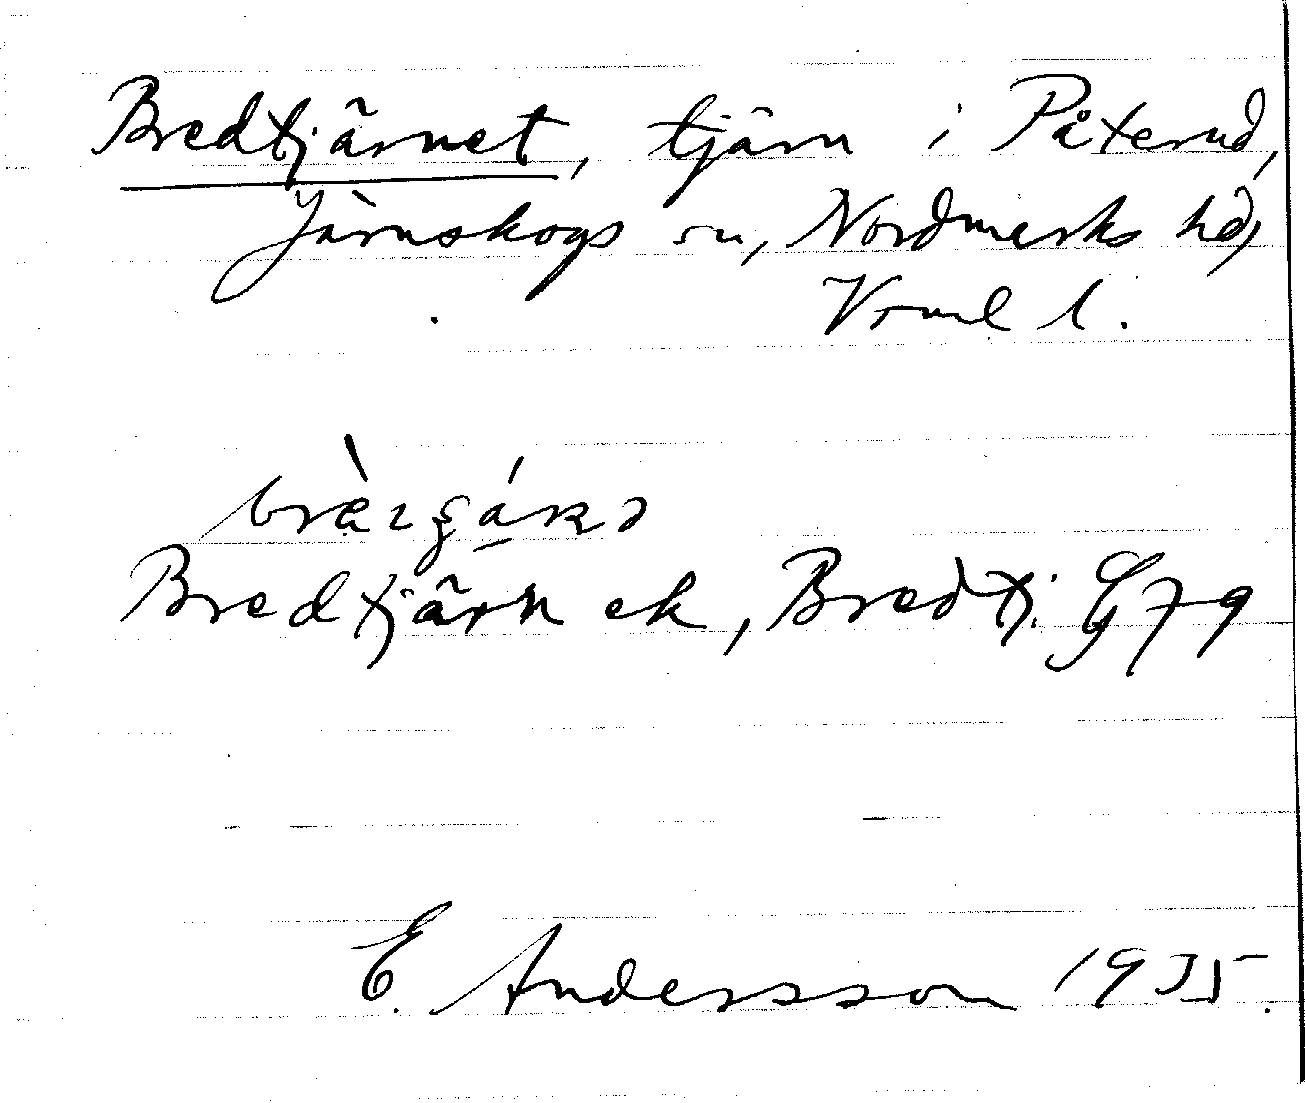 Bredtjärnet, tjärn i Påterud,
Järnskogs sn, Nordmarks hd,
Vrml l.
Bredtjärn ek, Bredtj. G79
E. Andersson 1935.